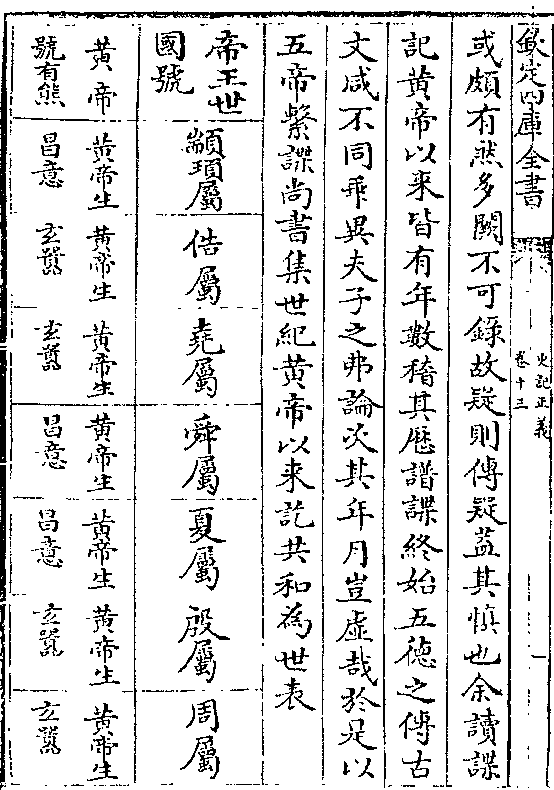 欽定四庫全書
史記正義
卷十三
一
或頗有然多闕不可錄故疑則傳疑葢其慎也余讀諜
記黄帝以来皆有年數稽其厯譜諜終始五徳之傳古
文咸不同乖異夫子之弗論次其年月豈虚哉於是以
五帝繫諜尚書集世紀黄帝以来訖共和為世表
帝王世
國號
顓頊屬
俈屬
堯屬
舜屬
夏屬
殷屬
周屬
黄帝
號有熊
黄帝生
昌意
黄帝生
玄囂
黄帝生
玄囂
黄帝生
昌意
黄帝生
昌意
黄帝生
玄囂
黄帝生
玄囂